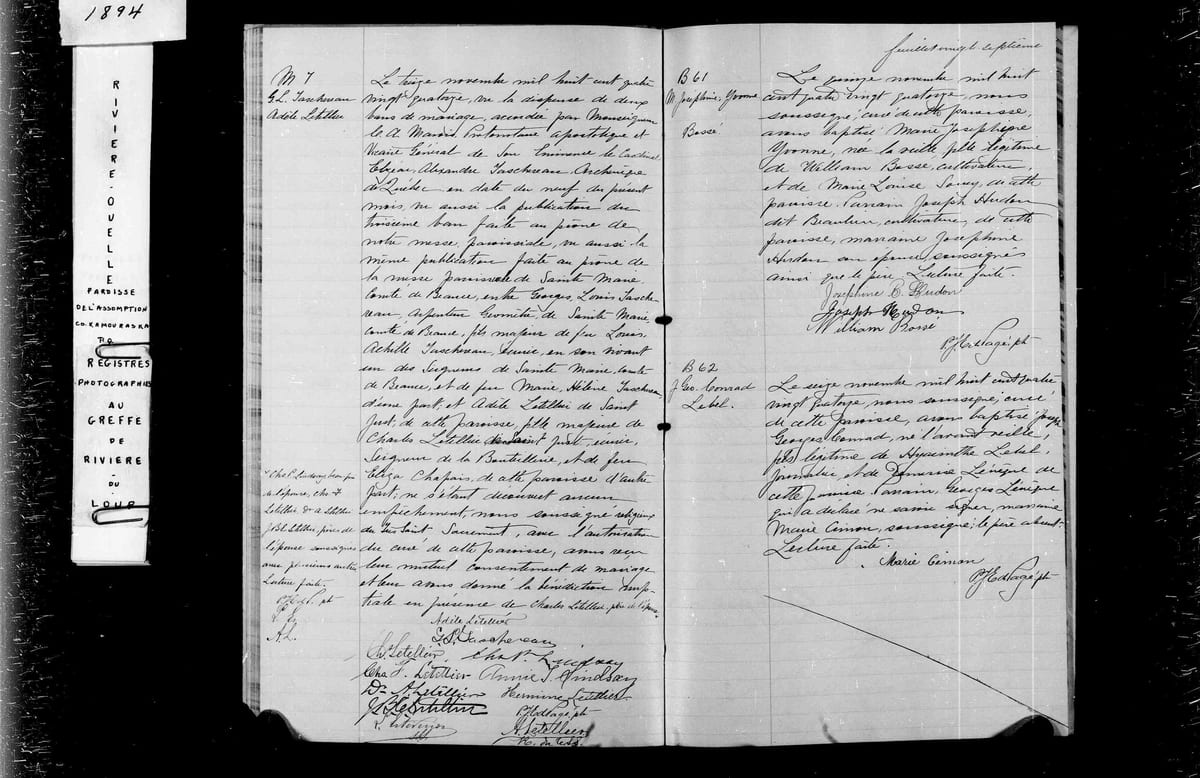 1894
RIVIERE-OUELLE
PAROISSE
DE L'ASSOMPTION
CO. KAMOURASKA
P.Q.
REGISTRES
PHOTOGRAPHIÉS
AU
GREFFE
DE
RIVIERE
DU
LOUP
M 7
G. L. Taschereau
Adèle Letellier
Le treize novembre mil huit cent quatre
vingt quatorze, vu la dispense de deux
bans de mariage, accordée par Monseigneur
le A Marois Protonotaire apostolique et
Vicaire Général de Son Eminence le Cardinal
Elzéar, Alexandre Taschereau Archevêque
de Québec en date du neuf du présent
mois, vu aussi la publication du
troisième ban faite au prône de
notre messe paroissiale, vu aussi la
même publication faite au prône de
la messe paroissiale de Sainte Marie
Comté de Beauce, entre Georges, Louis Tasche-
reau, Arpenteur Géomètre, de Sainte Marie
comté de Beauce, fils majeur de feu Louis
Achille Taschereau, écuier, en son vivant
un des Seigneurs de Sainte Marie, comté
de Beauce, et de feu Marie, Hélène Taschereau,
d'une part; et Adèle Letellier de Saint
Just, de cette paroisse, fille majeure de
Charles Letellier de Saint Just, écuier,
Seigneur de la Bouteillerie, et de feu
Eliza Chapais, de cette paroisse d'autre
part; ne s'étant découvert aucun
empêchement, nous soussigné religieux
du Très Saint Sacrement, avec l'autorisation
du curé de cette paroisse, avons reçu
leur mutuel consentement de mariage
et leur avons donné la bénédiction nup-
tiale en présence de Charles Letellier, père de l'épouse,
Chs P. Lindsay, beau frère
de l'épouse, Chs F
Letellier, Dr A Letellier
J. Bte Letellier, frères de
l'épouse soussignés
avec plusieurs autres
Lecture faite.
A.L.
Adèle Letellier
G. L. Taschereau
Ch. Letellier Chs P. Lindsay
Chs F. Letellier Annie S. Lindsay
Dr A Letellier Hermine Letellier
J B Letellier
A Letellier
feuillet vingt-septième
B 61
M. Joséphine, Yvonne
Bossé
Le quinze novembre mil huit
cent quatre vingt quatorze, nous
soussigné, curé de cette paroisse,
avons baptisé Marie Josephine
Yvonne, née la veille fille légitime
de William Bossé, cultivateur,
et de Marie Louise de cette
paroisse. Parrain Joseph Hudon
dit Beaulieu, cultivateur, de cette
paroisse, marraine Josephine
Hudon son épouse, soussignés
ainsi que le père. Lecture faite.
Josephine B. Hudon
Joseph Hudon
William Bossé
B 62
J Geo. Conrad
Lebel.
Le seize novembre mil huit cent quatre
vingt quatorze, nous soussigné, curé
de cette paroisse, avons baptisé Joseph
Georges Conrad, né l'avant veille,
fils légitime de Hyacinthe Lebel,
Journalier et de Démerise Lévêque de
cette paroisse. Parrain Georges Lévêque
qui a déclaré ne savoir signer, marraine
Marie Cimon, soussignée; le père absent.
Lecture faite.
Marie Cimon